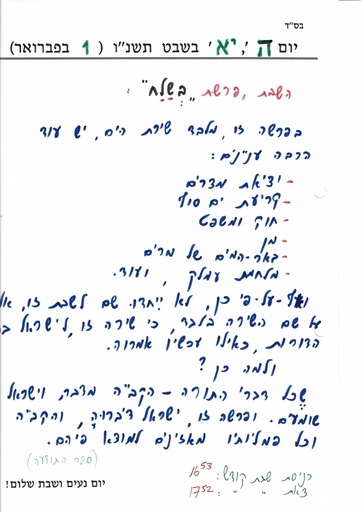 בס"ד
יום ה', י"א' בשבט תשנ"ו ( 1 בפברואר)
השבת, פרשת "בְּשַׁלַּח":
בפרשה זו, מלבד שירת הים, יש עוד
הרבה ענינים:
- יציאת מצרים
- קריעת ים סוף
- חוק ומשפט
- מן
- באר-המים של מרים
- מלחמת עמלק, ועוד.
ואף-על-פי כן, לא ייחדו שם לשבת זו, אלא
על שם השירה בלבד, כי שירה זו, לישראל
הדורות, כאילו עכשיו אמרוה.
ולמה כן?
שכל דברי התורה - הקב"ה מדבר, וישראל
שומעים. ופרשה זו, ישראל דיברוה, והקב"ה
וכל פמליותיו מאזינים למוצא פיהם.
(ספר התודעה)
כניסת שבת קודש: 16⁵³
צאת " " : 17⁵²
יום נעים ושבת שלום!